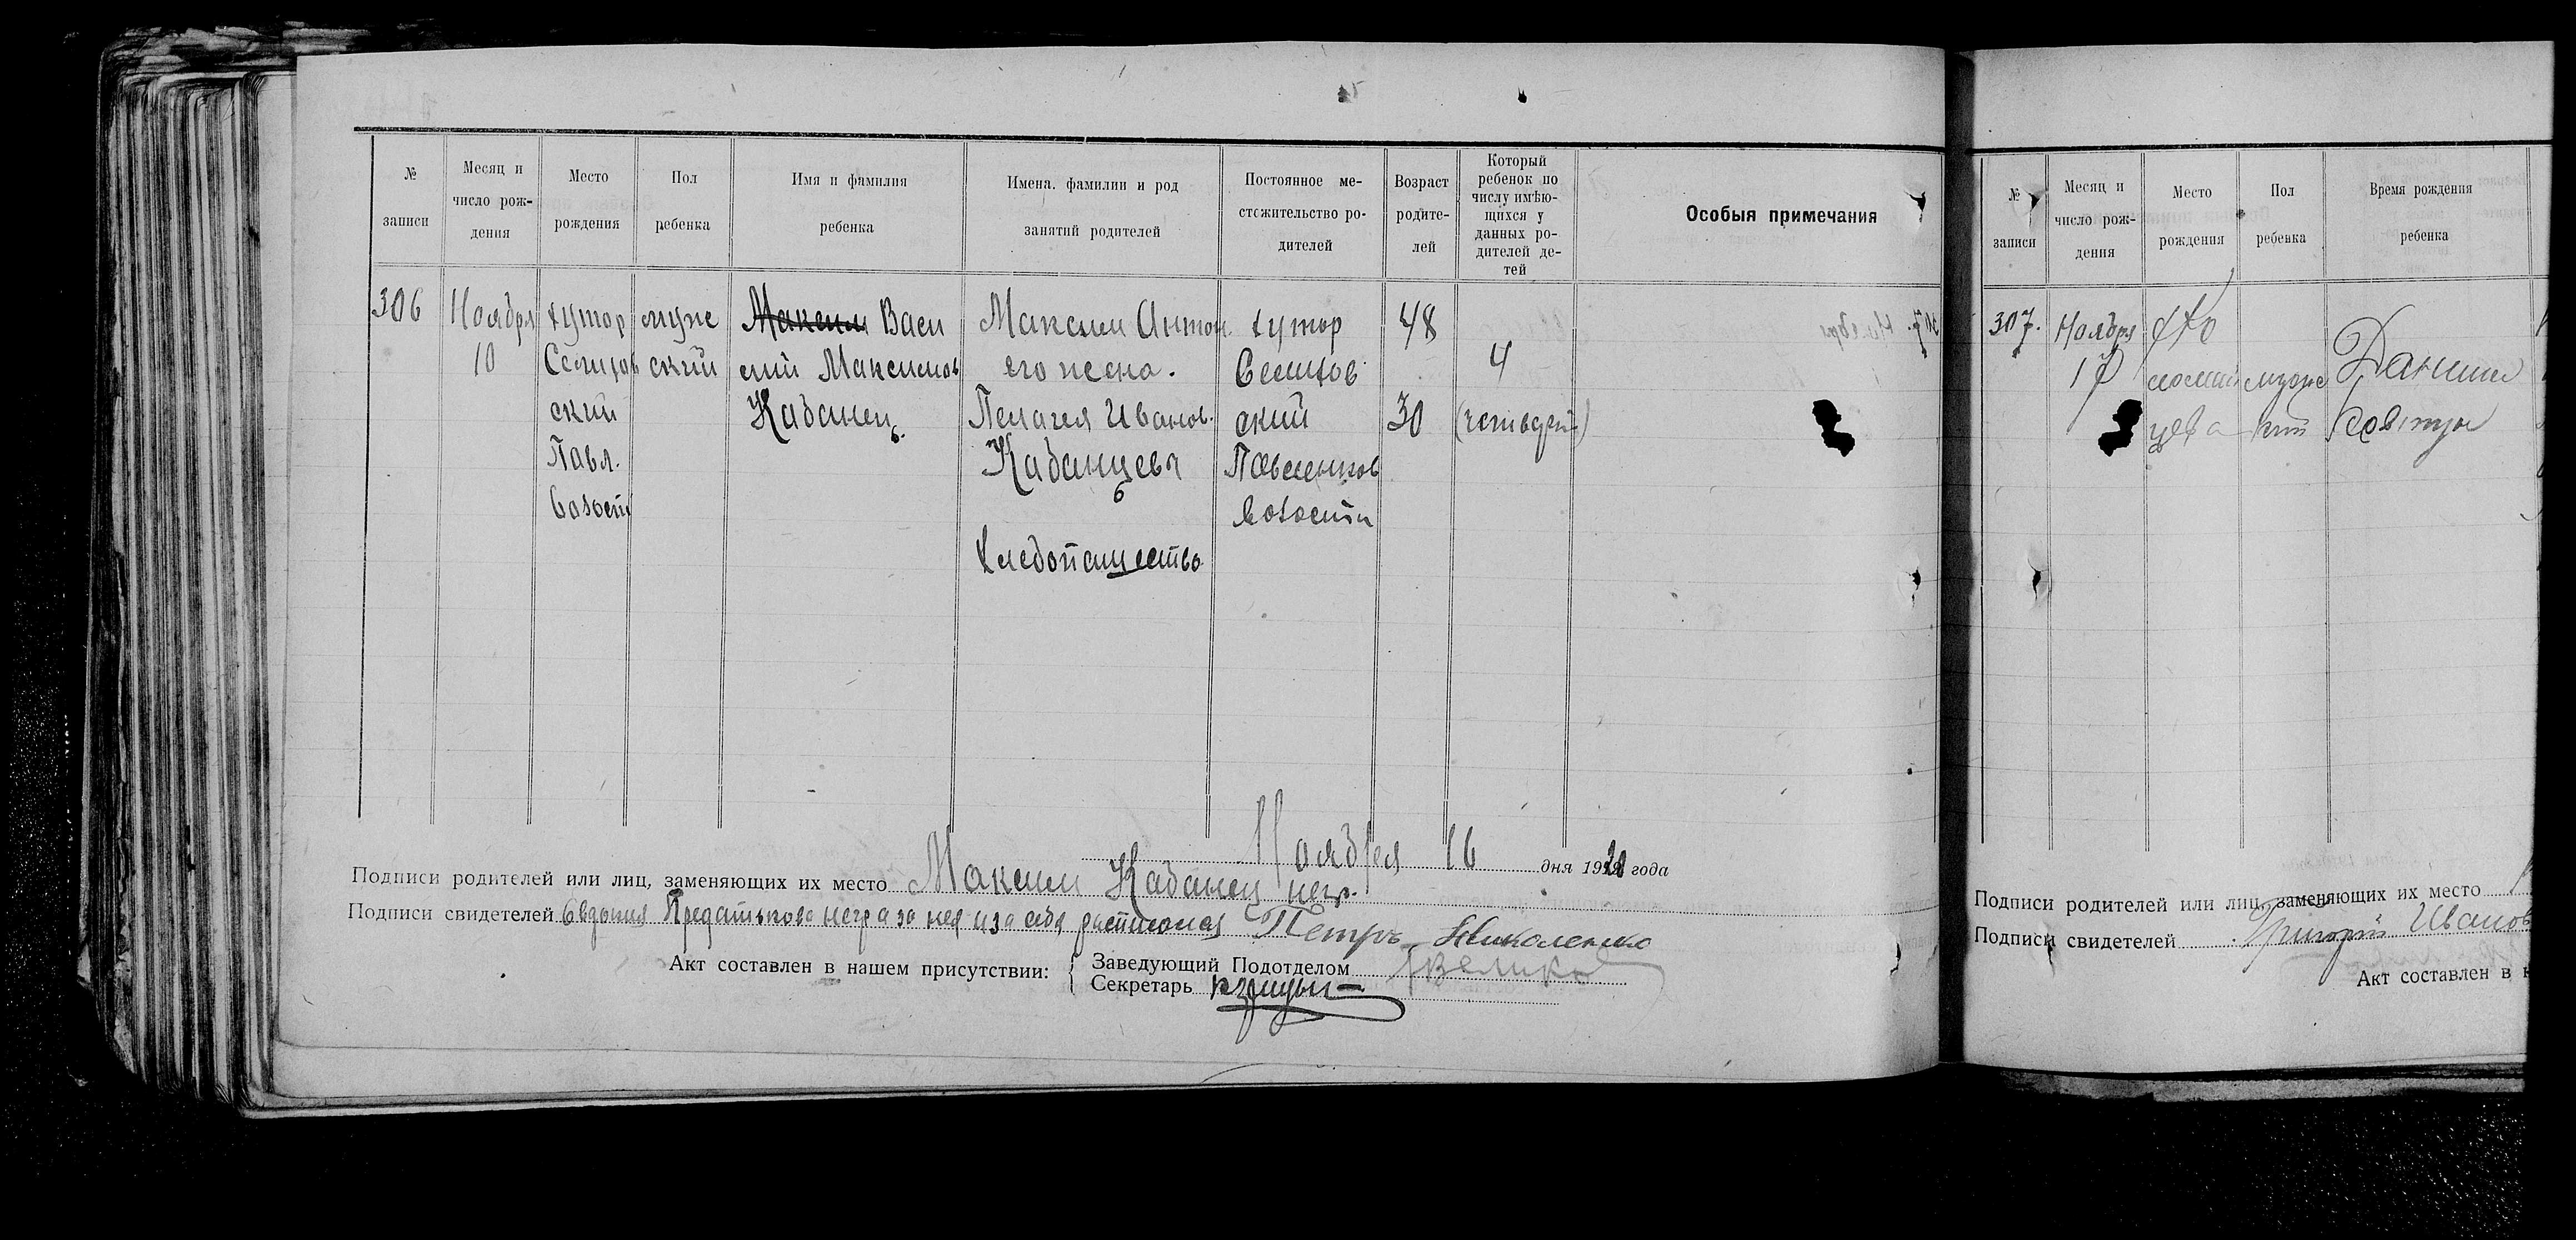 № записи
Месяц и число рождения
Место рождения
Пол ребенка
Имя и фамилия ребенка
Имена, фамилии и род занятий родителей
Постоянное местожительство родителей
Возраст родителей
Который ребенок по числу имѣющихся у данных родителей детей
Особыя примечания
306
Ноября
10
хутор
ский
Павл.
волости
мужс
кий
Васи
лий Максимов
Кабанец
Максим Антон.
его жена.
Пелагея Иванов.
Кабанцевы
хлебопашество
хутор
ский
волости
48
30
4
Ноября 16 дня 1920 года
Подписи родителей или лиц, заменяющих их место Максим Кабанец негр.
Подписи свидетелей Евдокия негр а за нея и за себя расписался Петръ Николенко
Акт составлен в нашем присутствии:
Заведующий Подотделом
Секретарь
№ записи
Месяц и число рождения
Место рождения
Пол ребенка
Время рождения ребенка
307.
Ноября
Даниил
Подписи родителей или лиц, заменяющих их место
Подписи свидетелей Григорий Иванов
Акт составлен в н